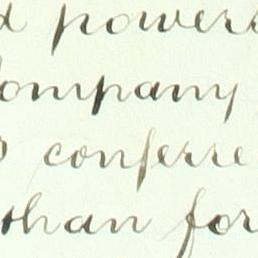 powers
Company
conferre
than for